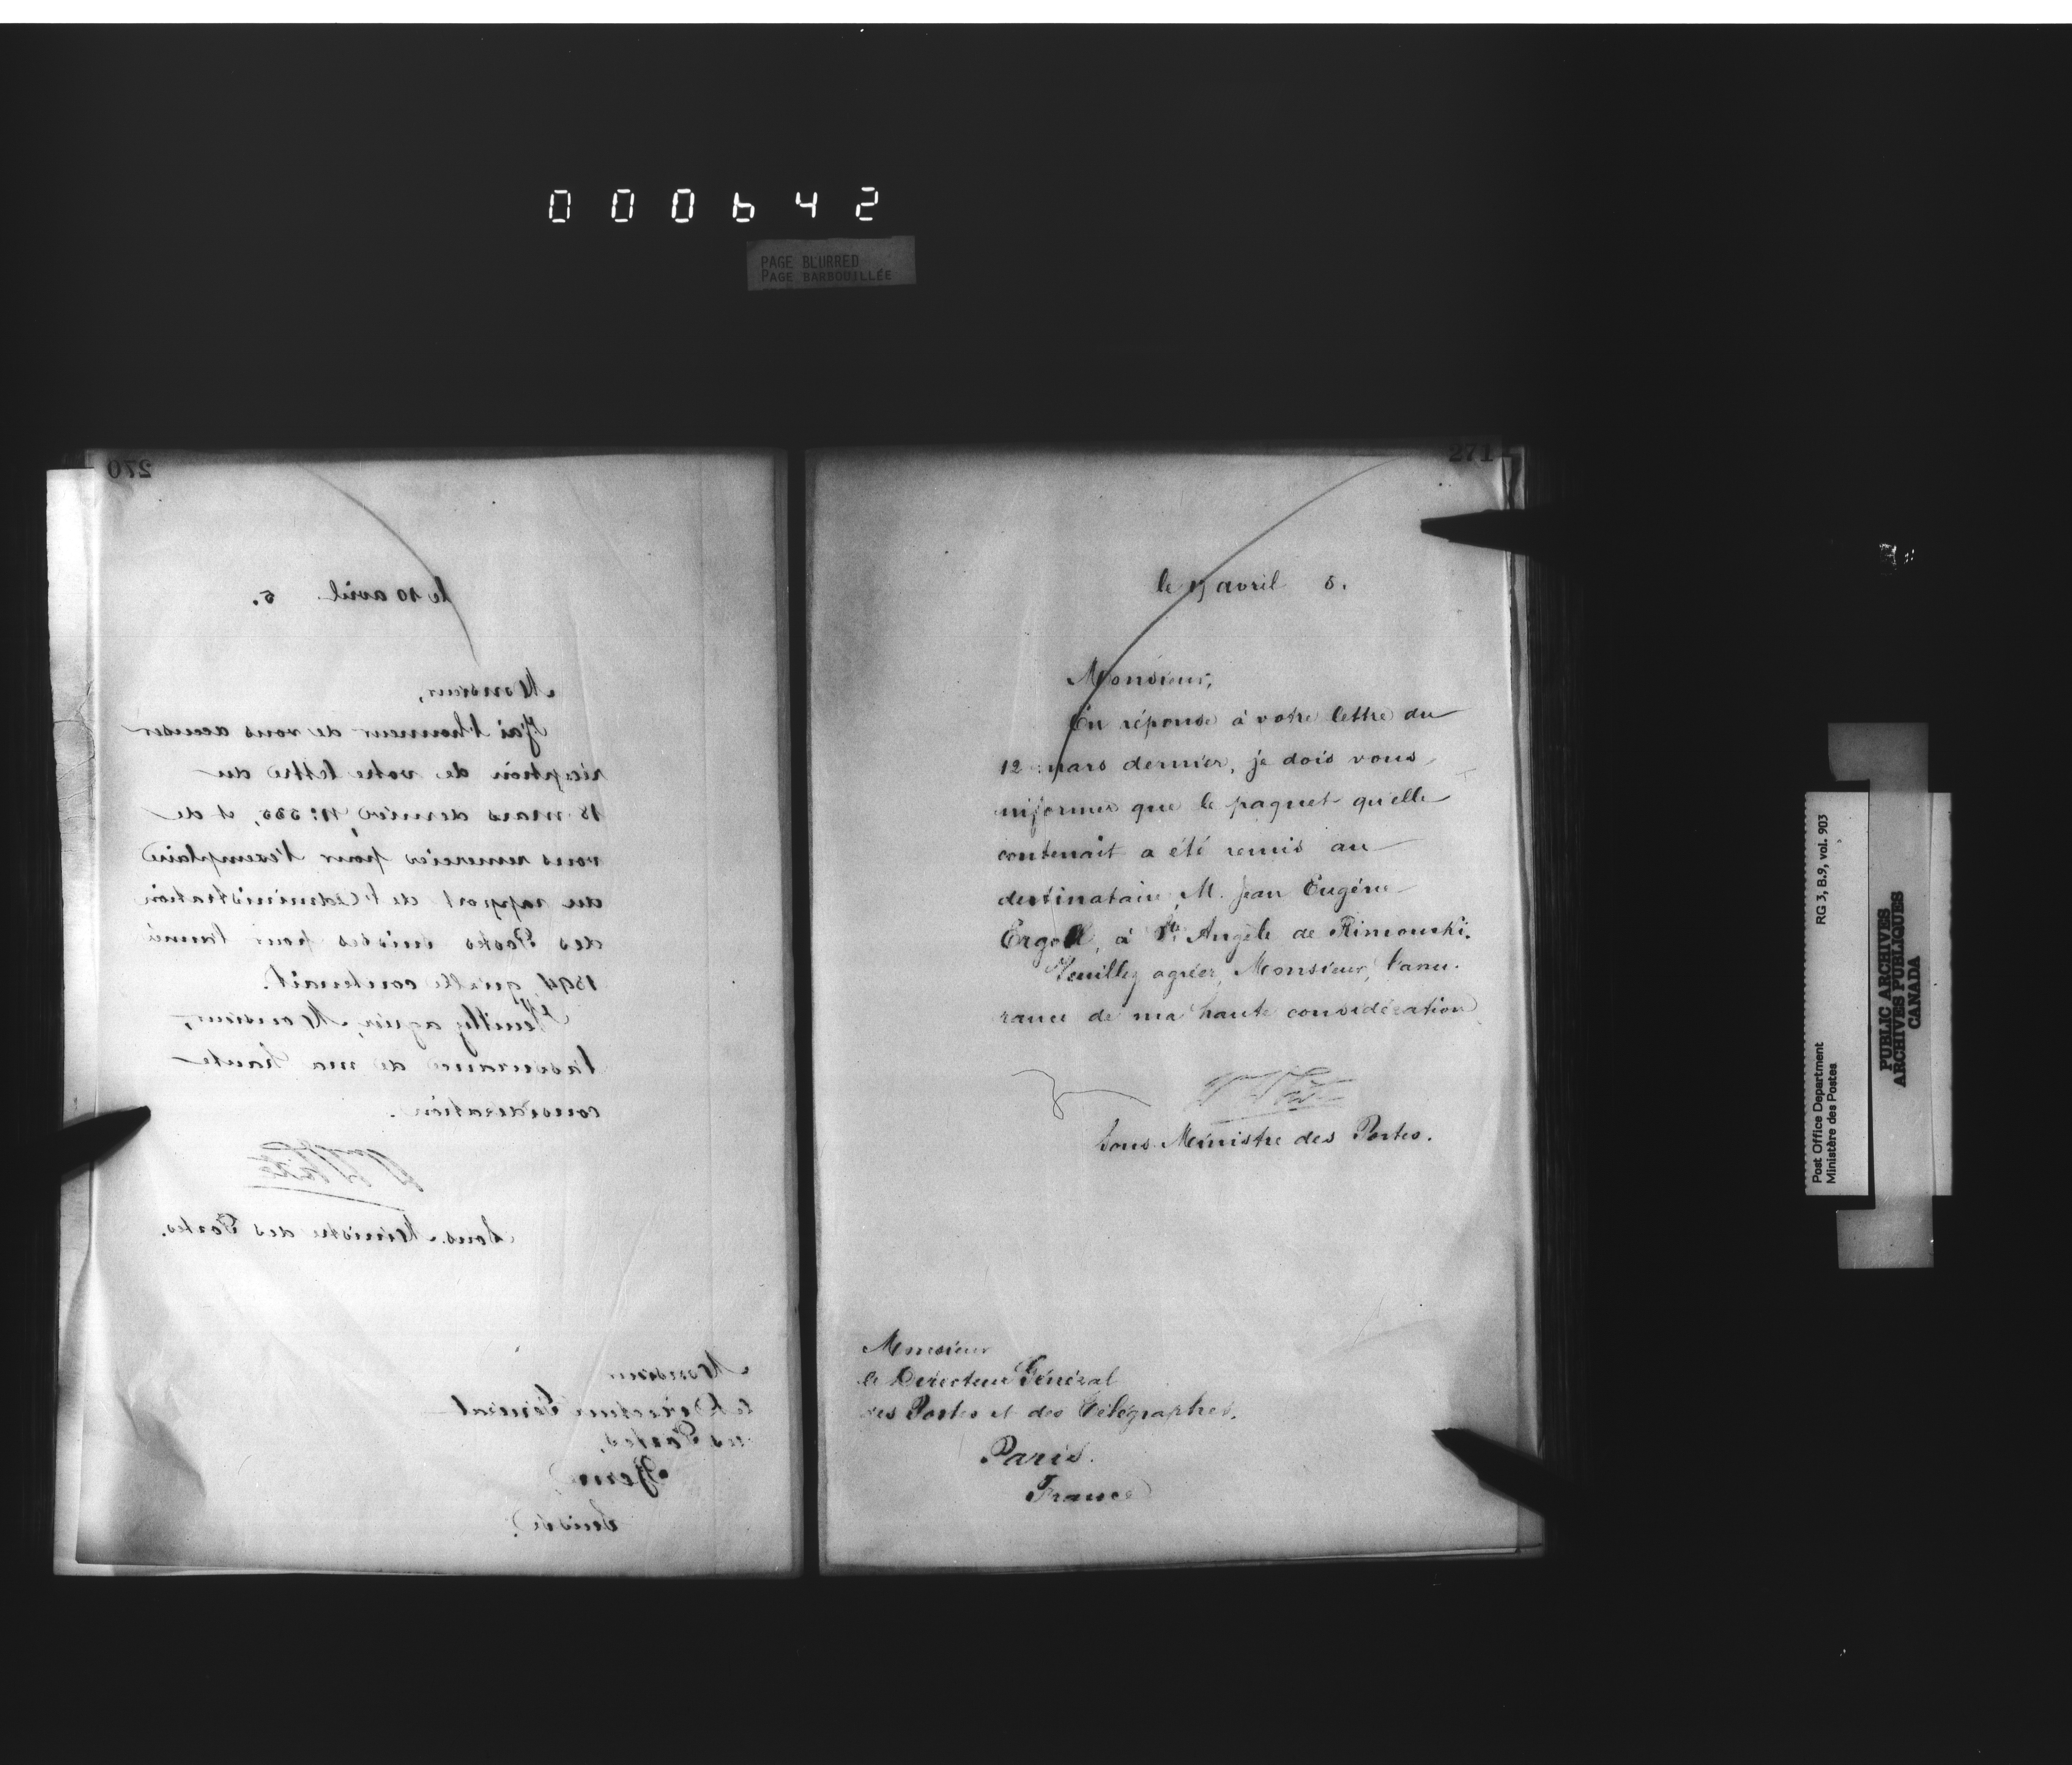 000642
PAGE BLURRED
PAGE BARBOUILLÉE
270
le 10 avril 5.
Monsieur,
J'ai l'honneur de vous accuser
réception de votre lettre du
18 mars dernier, et de
vous remercier pour l'exemplaire
du rapport de l'administration
des Postes suisses pour l'année
1894, qu'elle contenait.
Veuillez agréer, Monsieur,
l'assurance de ma haute
considération.
Wm White
Sous-Ministre des Postes.
Monsieur
le Directeur Général
des Postes,
Berne
Suisse.
271
le avril 5.
Monsieur,
En réponse à votre lettre du
12 mars dernier, je dois vous
informer que le paquet qu'elle
contenait a été remis au
destinataire, M. Jean Eugène
à Ste Angèle de Rimouski.
Veuillez agréer, Monsieur, l'assu-
rance de ma haute considération
W White
Sous-Ministre des Postes.
Monsieur
le Directeur Général
des Postes et des Télégraphes.
Paris.
France
Post Office Department RG 3, B.9, vol. 903
Ministère des Postes
PUBLIC ARCHIVES
ARCHIVES PUBLIQUES
CANADA